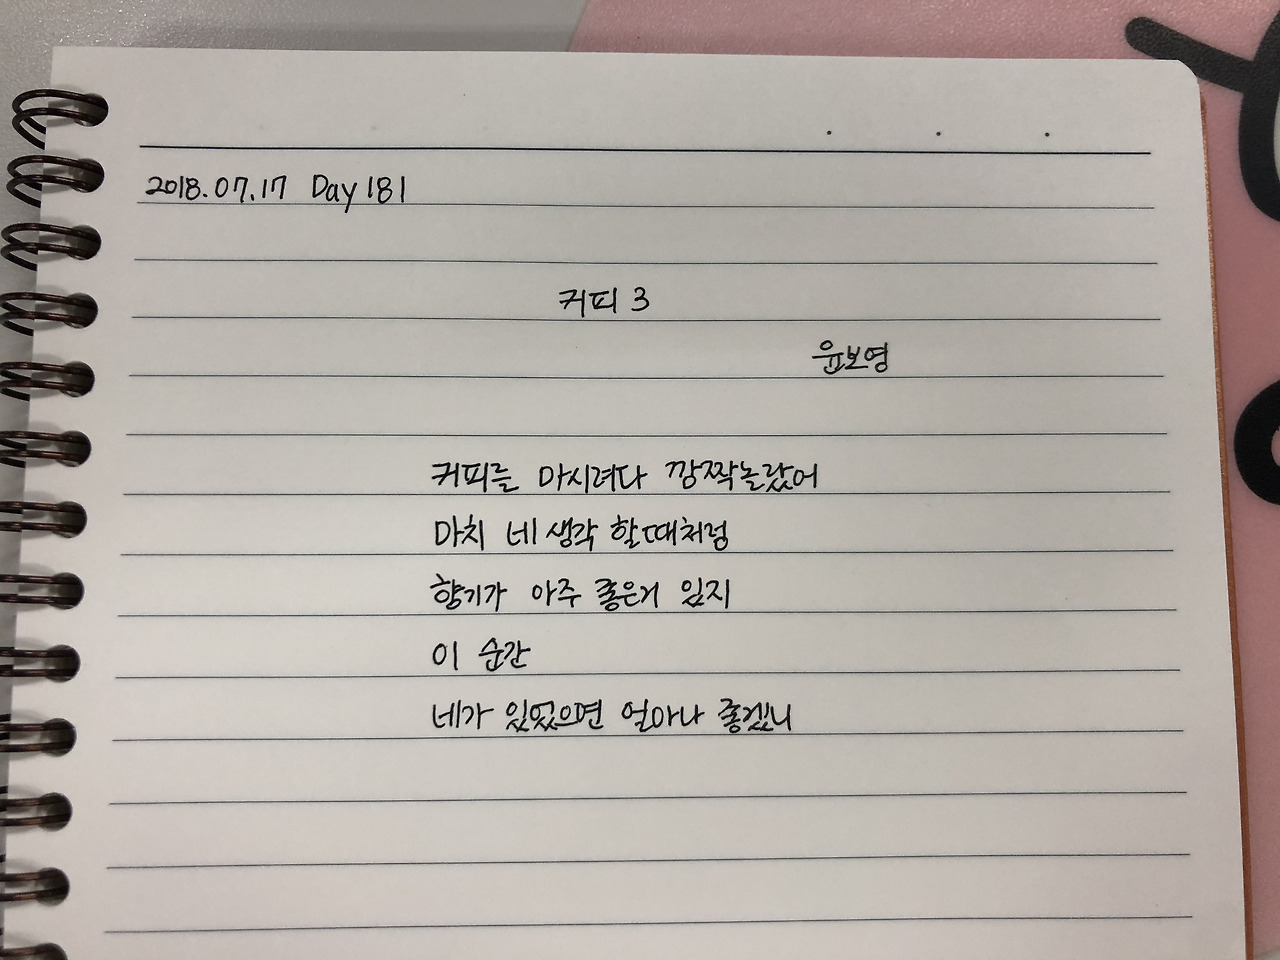 2018.07.17 Day 181
커피 3
윤보영
커피를 마시려다 깜짝놀랐어
마치 네 생각 할때처럼
향기가 아주 좋은거 있지
이 순간
네가 있었으면 얼마나 좋겠니